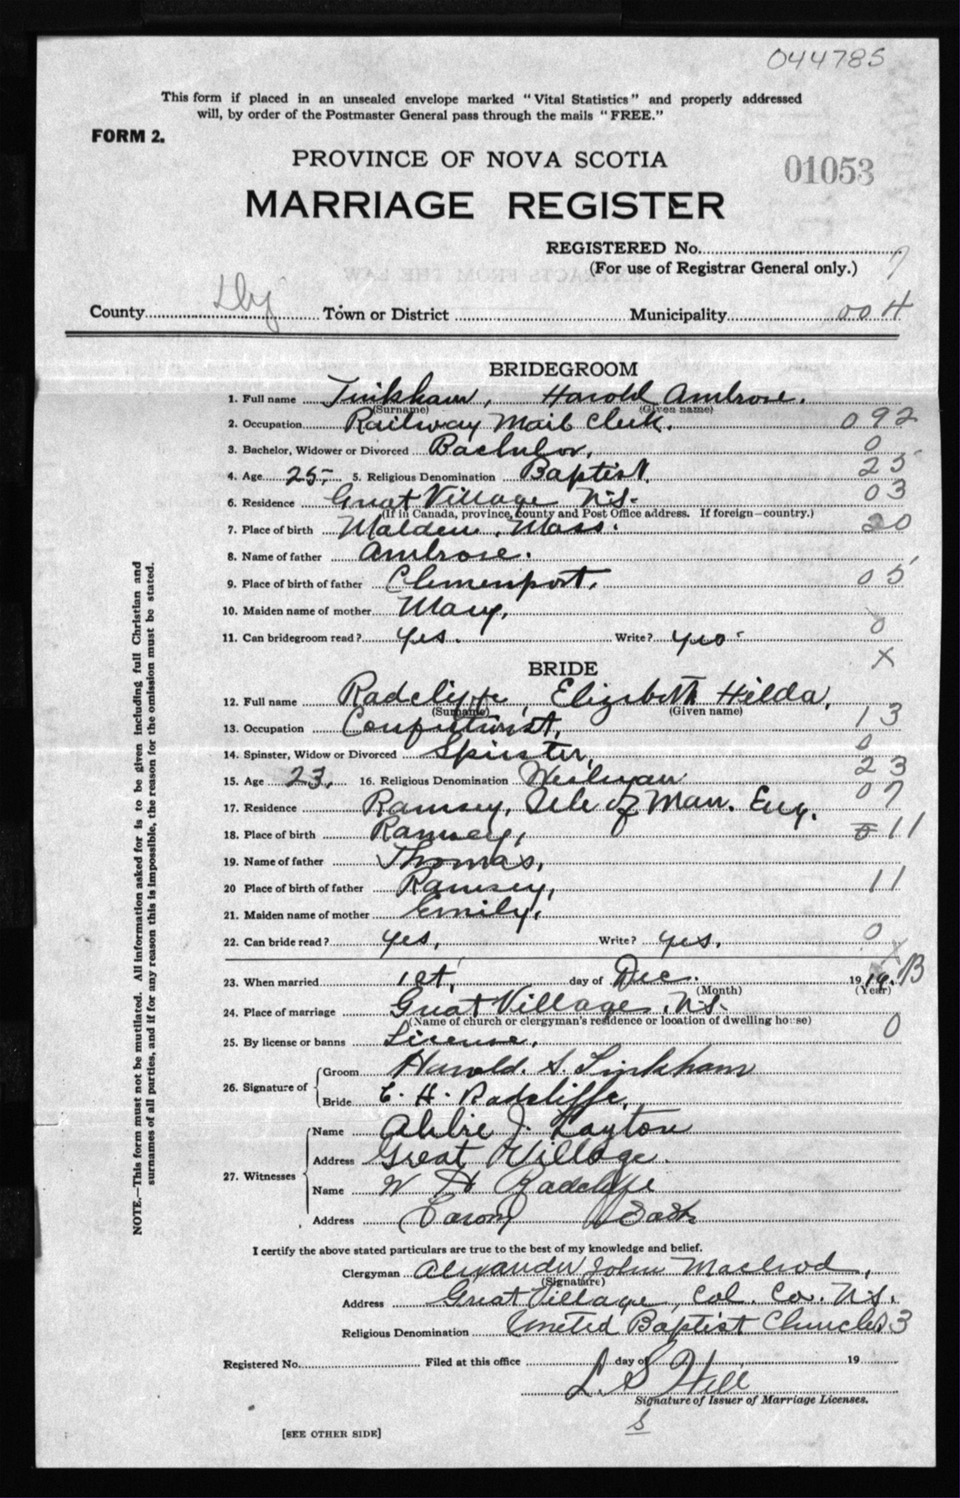 044785
This form if placed in an unsealed envelope marked "Vital Statistics" and properly addressed
will, by order of the Postmaster General pass through the mails "FREE."
FORM 2.
PROVINCE OF NOVA SCOTIA
01053
MARRIAGE REGISTER
REGISTERED No. 7
(For use of Registrar General only.)
County Town or District Municipality 004
BRIDEGROOM
1. Full name Tinkham, Harold Ambrose.
(Surname) (Given name)
2. Occupation Railway Mail Clerk. 092
3. Bachelor, Widower or Divorced Bachelor. 0
4. Age 25 5. Religious Denomination Baptist. 25
6. Residence Great Village N.S. 03
(If in Canada, province, county and Post Office address. If foreign—country.)
7. Place of birth Malden, Mass. 20
8. Name of father Ambrose.
9. Place of birth of father Clemenport. 05
10. Maiden name of mother Mary,
11. Can bridegroom read? yes. Write? yes. 0
X
BRIDE
12. Full name Radcliffe, Elizabeth Hilda,
(Surname) (Given name)
13. Occupation 13
14. Spinster, Widow or Divorced Spinster, 0
15. Age 23. 16. Religious Denomination Wesleyan 23
17. Residence Ramsey, Isle of Man. Eng. 07
18. Place of birth Ramsey, 11
19. Name of father Thomas,
20 Place of birth of father Ramsey, 11
21. Maiden name of mother Emily,
22. Can bride read? yes, Write? yes. 0
X
23. When married 1st, day of Dec. 1919. B
(Month) (Year)
24. Place of marriage Great Village, N.S.
(Name of church or clergyman's residence or location of dwelling house)
25. By license or banns License, 0
26. Signature of Groom Harold. S. Tinkham
Bride E. H. Radcliffe,
27. Witnesses
Name Abbie J. Layton
Address Great Village.
Name W H Radcliffe
Address
I certify the above stated particulars are true to the best of my knowledge and belief.
Clergyman Alexander John Macleod,
(Signature)
Address Great Village, Col. Co. N.S.
Religious Denomination United Baptist Church 3
Registered No. Filed at this office day of 19
L S Hill
Signature of Issuer of Marriage Licenses.
[SEE OTHER SIDE]
NOTE.—This form must not be mutilated. All information asked for is to be given including full Christian and
surnames of all parties, and if for any reason this is impossible, the reason for the omission must be stated.